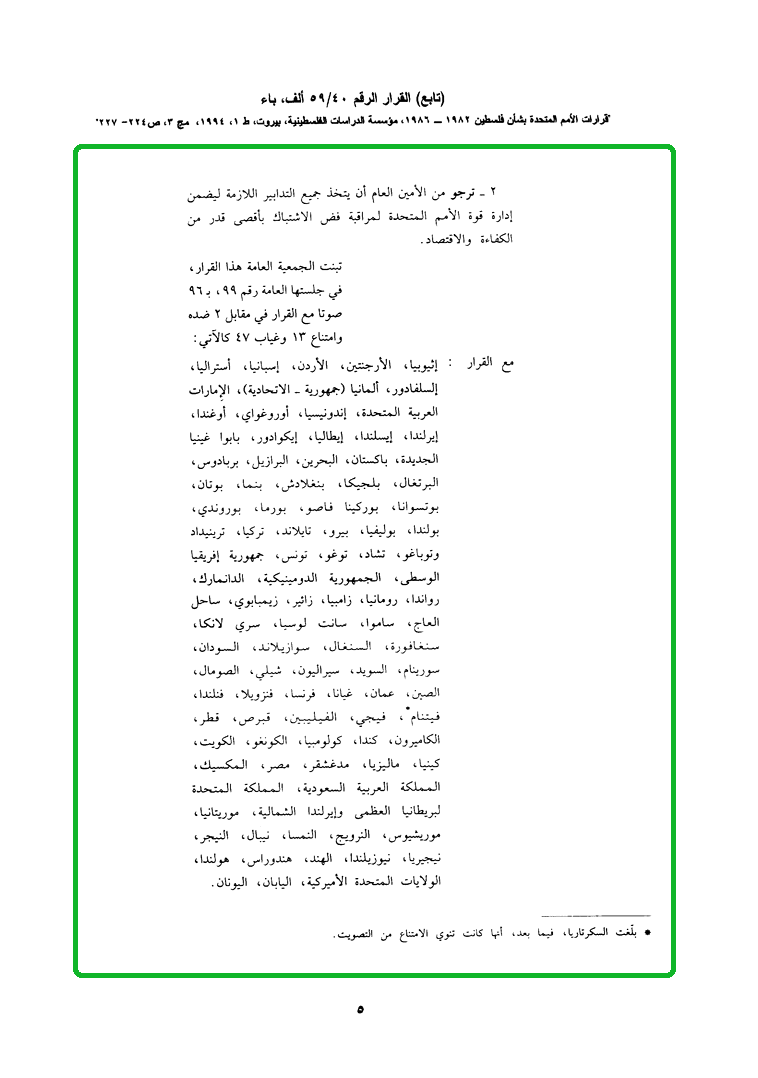 (تابع) القرار الرقم ٥٩/٤٠ ألف، باء
"قرارات الأمم المتحدة بشأن فلسطين ١٩٨٢ ــ ١٩٨٦، مؤسسة الدراسات الفلسطينية، بيروت، ط ١، ١٩٩٤، مج ٣، ص٢٢٤- ٢٢٧"
٢ ـ ترجو من الأمين العام أن يتخذ جميع التدابير اللازمة ليضمن
إدارة قوة الأمم المتحدة لمراقبة فض الاشتباك بأقصى قدر من
الكفاءة والاقتصاد.
تبنت الجمعية العامة هذا القرار،
في جلستها العامة رقم ٩٩، بـ ٩٦
صوتا مع القرار في مقابل ٢ ضده
وامتناع ١٣ وغياب ٤٧ كالآتي:
مع القرار : إثيوبيا، الأرجنتين، الأردن، إسبانيا، أستراليا،
إلسلفادور، ألمانيا (جمهورية ـ الاتحادية)، الإمارات
العربية المتحدة، إندونيسيا، أوروغواي، أوغندا،
إيرلندا، إيسلندا، إيطاليا، إيكوادور، بابوا غينيا
الجديدة، باكستان، البحرين، البرازيل، بربادوس،
البرتغال، بلجيكا، بنغلادش، بنما، بوتان،
بوتسوانا، بوركينا فاصو، بورما، بوروندي،
بولندا، بوليفيا، بيرو، تايلاند، تركيا، ترينيداد
وتوباغو، تشاد، توغو، تونس، جمهورية إفريقيا
الوسطى، الجمهورية الدومينيكية، الدانمارك،
رواندا، رومانيا، زامبيا، زائير، زيمبابوي، ساحل
العاج، ساموا، سانت لوسيا، سري لانكا،
سنغافورة، السنغال، سوازيلاند، السودان،
سورينام، السويد، سيراليون، شيلي، الصومال،
الصين، عمان، غيانا، فرنسا، فنزويلا، فنلندا،
فيتنام*، فيجي، الفيليبين، قبرص، قطر،
الكاميرون، كندا، كولومبيا، الكونغو، الكويت،
كينيا، ماليزيا، مدغشقر، مصر، المكسيك،
المملكة العربية السعودية، المملكة المتحدة
لبريطانيا العظمى وإيرلندا الشمالية، موريتانيا،
موريشيوس، النرويج، النمسا، نيبال، النيجر،
نيجيريا، نيوزيلندا، الهند، هندوراس، هولندا،
الولايات المتحدة الأميركية، اليابان، اليونان.
* بلّغت السكرتاريا، فيما بعد، أنها كانت تنوي الامتناع من التصويت.
٥